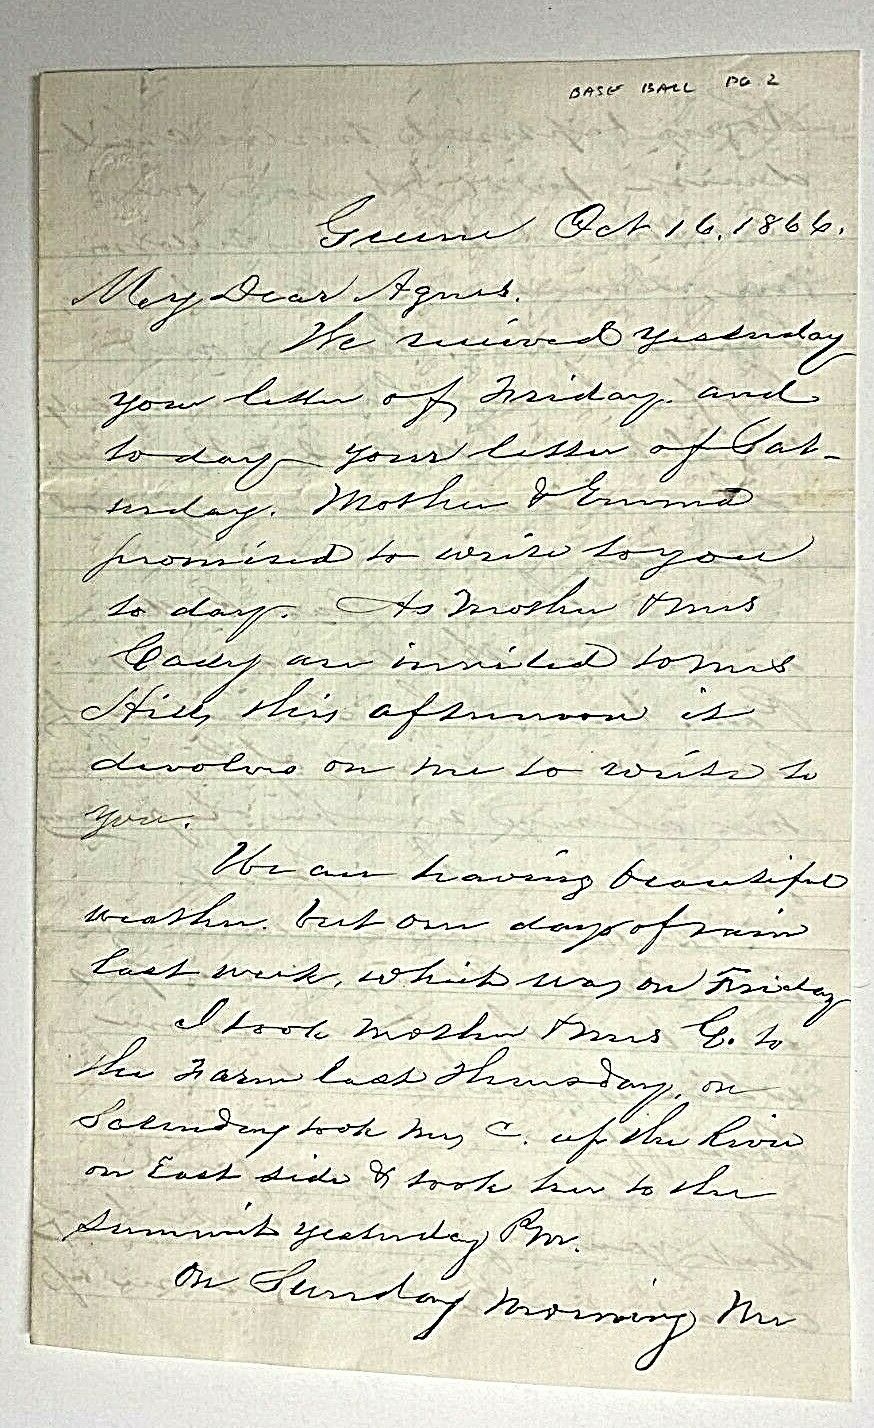 BASE BALL PG 2
Greene Oct 16. 1866.
My Dear Agnes.
We received yesterday
your letter of Friday. and
to day your letter of Sat-
urday. Mother & Emma
promised to write to you
to day. As Mother & Mrs
Cady are invited to Mrs
Hills this afternoon it
devolves on me to write to
you.
We are having beautiful
weather. but one day of rain
last week, which was on Friday
I took Mother & Mrs C. to
the Farm last Thursday, on
Saturday took Mrs C. up the River
on East side & took her to the
summit yesterday PM.
On Sunday morning Mr